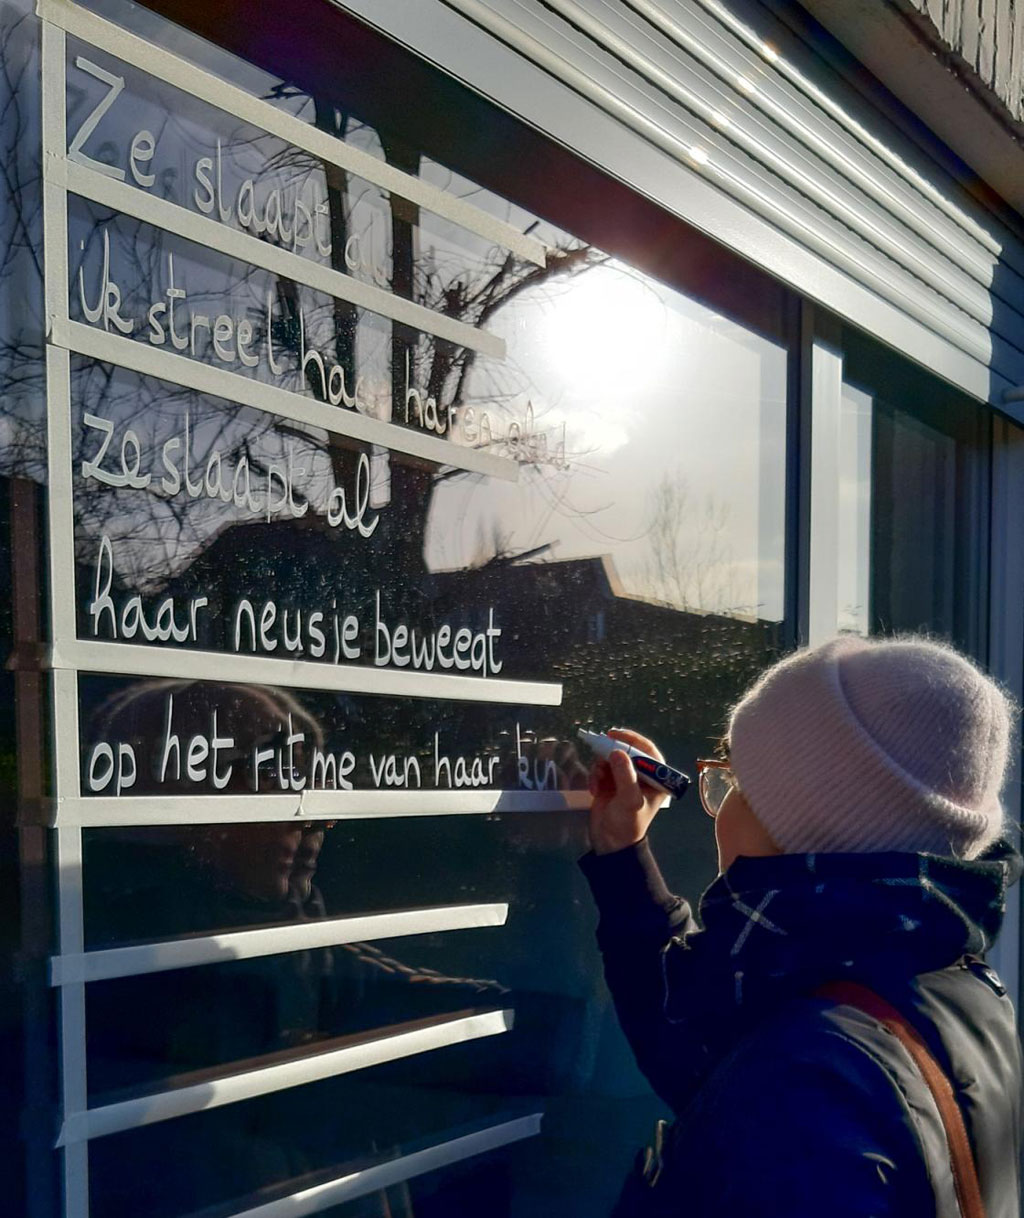 Ze slaapt al
ik streel haar haren
ze slaapt al
haar neusje beweegt
op het ritme van haar kin